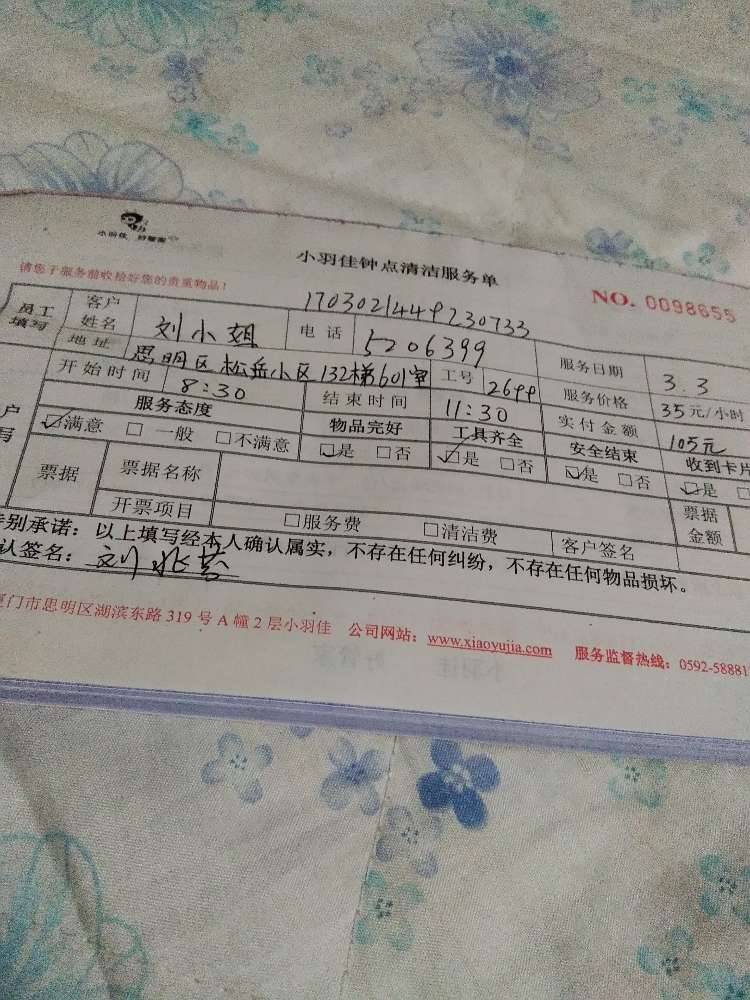 小羽佳 好管家
小羽佳钟点清洁服务单
请您于服务前收拾好您的贵重物品！
NO. 0098655
1703021449230733
员工填写 客户姓名 刘小姐 电话 5206399 服务日期 3.3
地址 思明区松岳小区132梯601室 工号 2699 服务价格 35元/小时
开始时间 8:30 结束时间 11:30 实付金额 105元
户 服务态度 物品完好 工具齐全 安全结束 收到卡片
写 ☑满意 □一般 □不满意 ☑是 □否 ☑是 □否 ☑是 □否 ☑是 □
票据 票据名称 票据金额
开票项目 □服务费 □清洁费 客户签名
特别承诺：以上填写经本人确认属实，不存在任何纠纷，不存在任何物品损坏。
认签名：刘
厦门市思明区湖滨东路 319 号 A 幢 2 层小羽佳 公司网站：www.xiaoyujia.com 服务监督热线：0592-58881